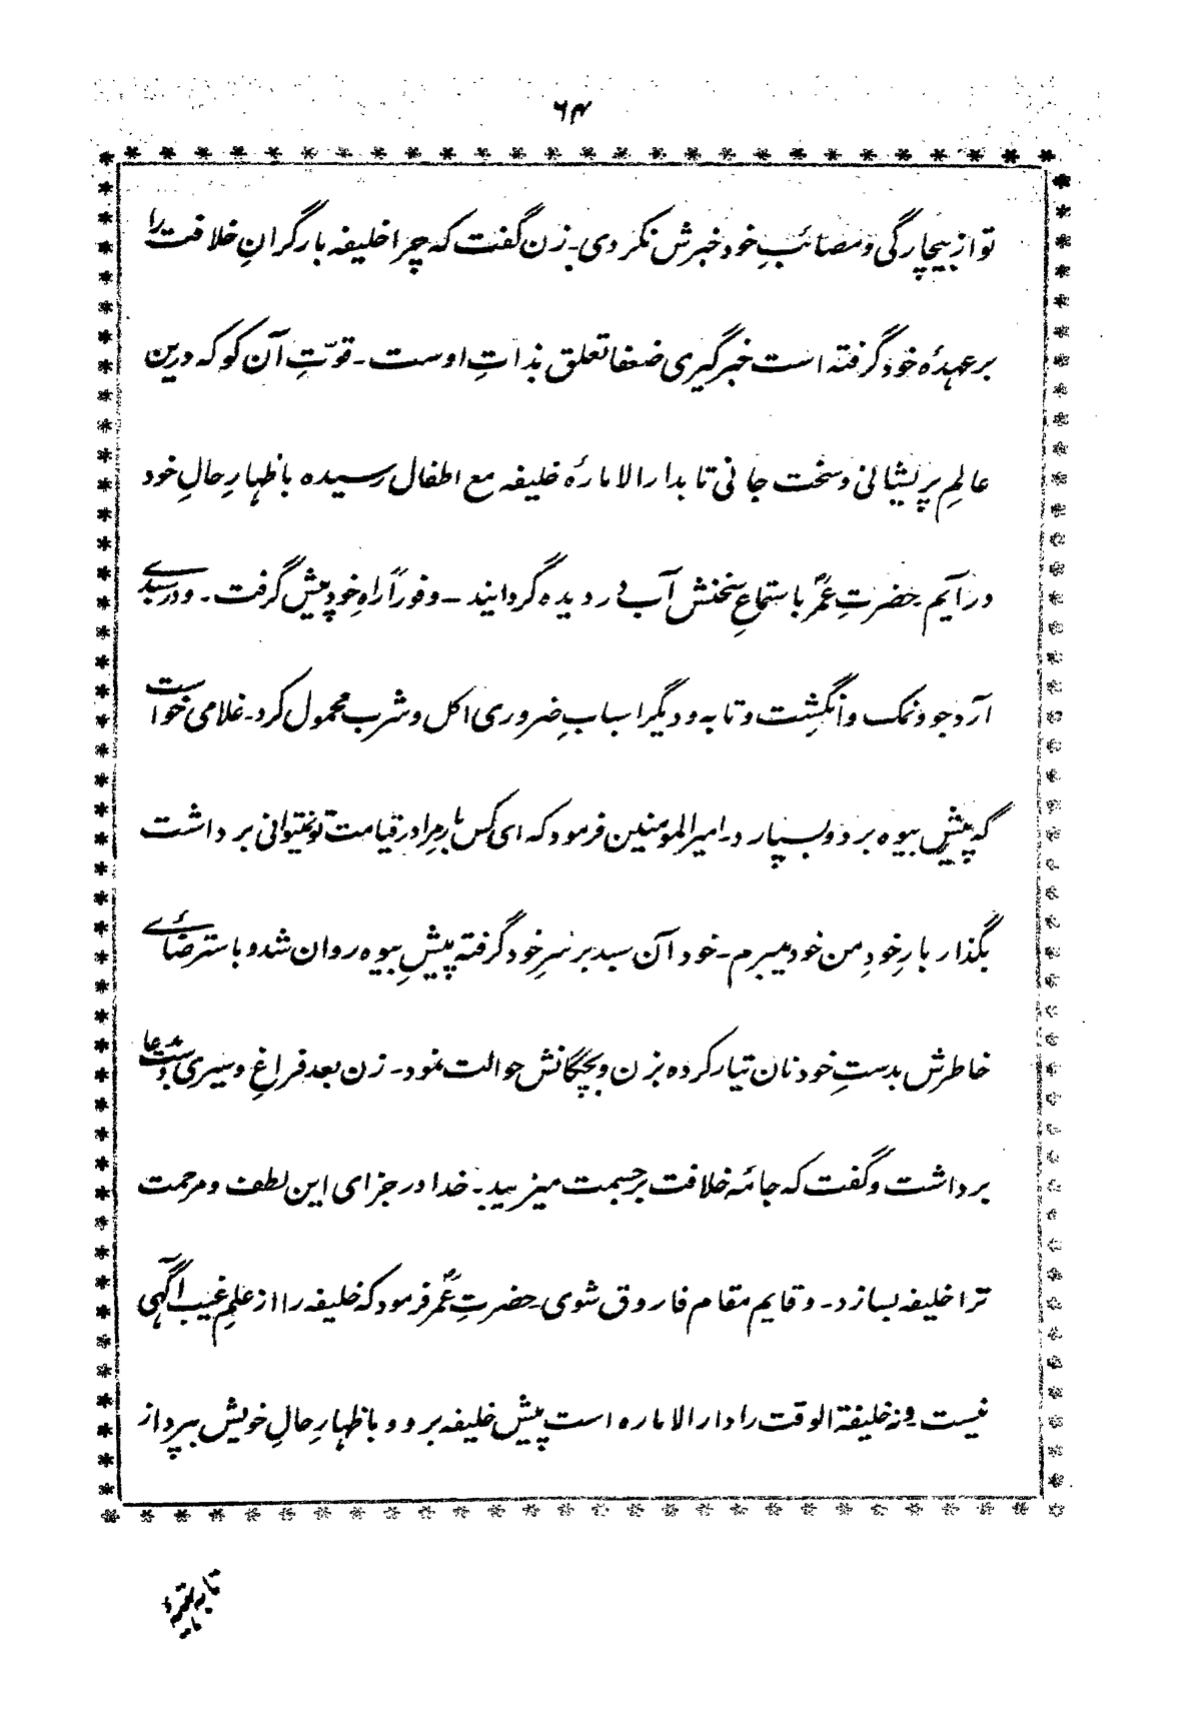 ۶۴
تو از بیچارگی و مصائبِ خود خبرش نکردی۔ زن گفت که چرا خلیفه بارگرانِ خلافت را
بر عهدۂ خود گرفته است خبرگیری ضعفا تعلق بذاتِ اوست۔ قوّتِ آن کو که درین
عالمِ پریشانی و سخت جانی تا بدارالامارۂ خلیفه مع اطفال رسیده باظهارِ حالِ خود
درآیم حضرتِ عمرؓ با ستماعِ سخنش آب در دیده گردانید۔ و فوراً راهِ خود پیش گرفت۔ و در سبدے
آرد جو و نمک و انگشت و تابه و دیگر اسبابِ ضروری اکل و شرب محمول کرد۔ غلامی خواست
که پیشِ بیوه برد و بسپارد۔ امیر المومنین فرمود که ای کس بارِ مرا در قیامت تو نتوانی برداشت
بگذار بارِ خود من خود میبرم۔ خود آن سبد بر سرِ خود گرفته پیشِ بیوه روان شد و باسترضائے
خاطرش بدستِ خود نان تیار کرده بزن و بچگانش حوالت نمود۔ زن بعد فراغِ و سیری دست بدعا
برداشت و گفت که جامۂ خلافت بر جسمت میزیبد۔ خدا در جزای این لطف و مرحمت
ترا خلیفه بسازد۔ و قایم مقام فاروق شوی۔ حضرتِ عمرؓ فرمود که خلیفه را از علمِ غیب آگهی
نیست و نه خلیفة الوقت را دارالاماره است پیش خلیفه برو و باظهارِ حالِ خویش بپرداز